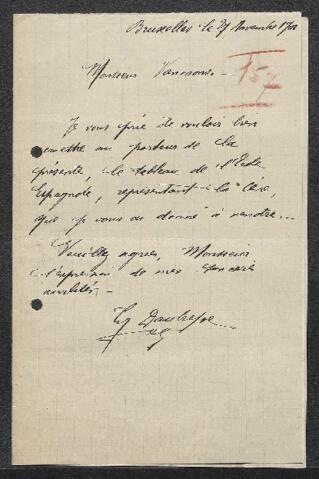 Bruxelles le 29 Novembre
Monsieur
157
Je vous prie de vouloir bien
remettre au porteur de la
présente, le tableau de l'Ecole
Espagnole, représentant la
que je vous ai donné à vendre.
Veuillez agréer, Monsieur
l'expression de mes sincères
civilités.